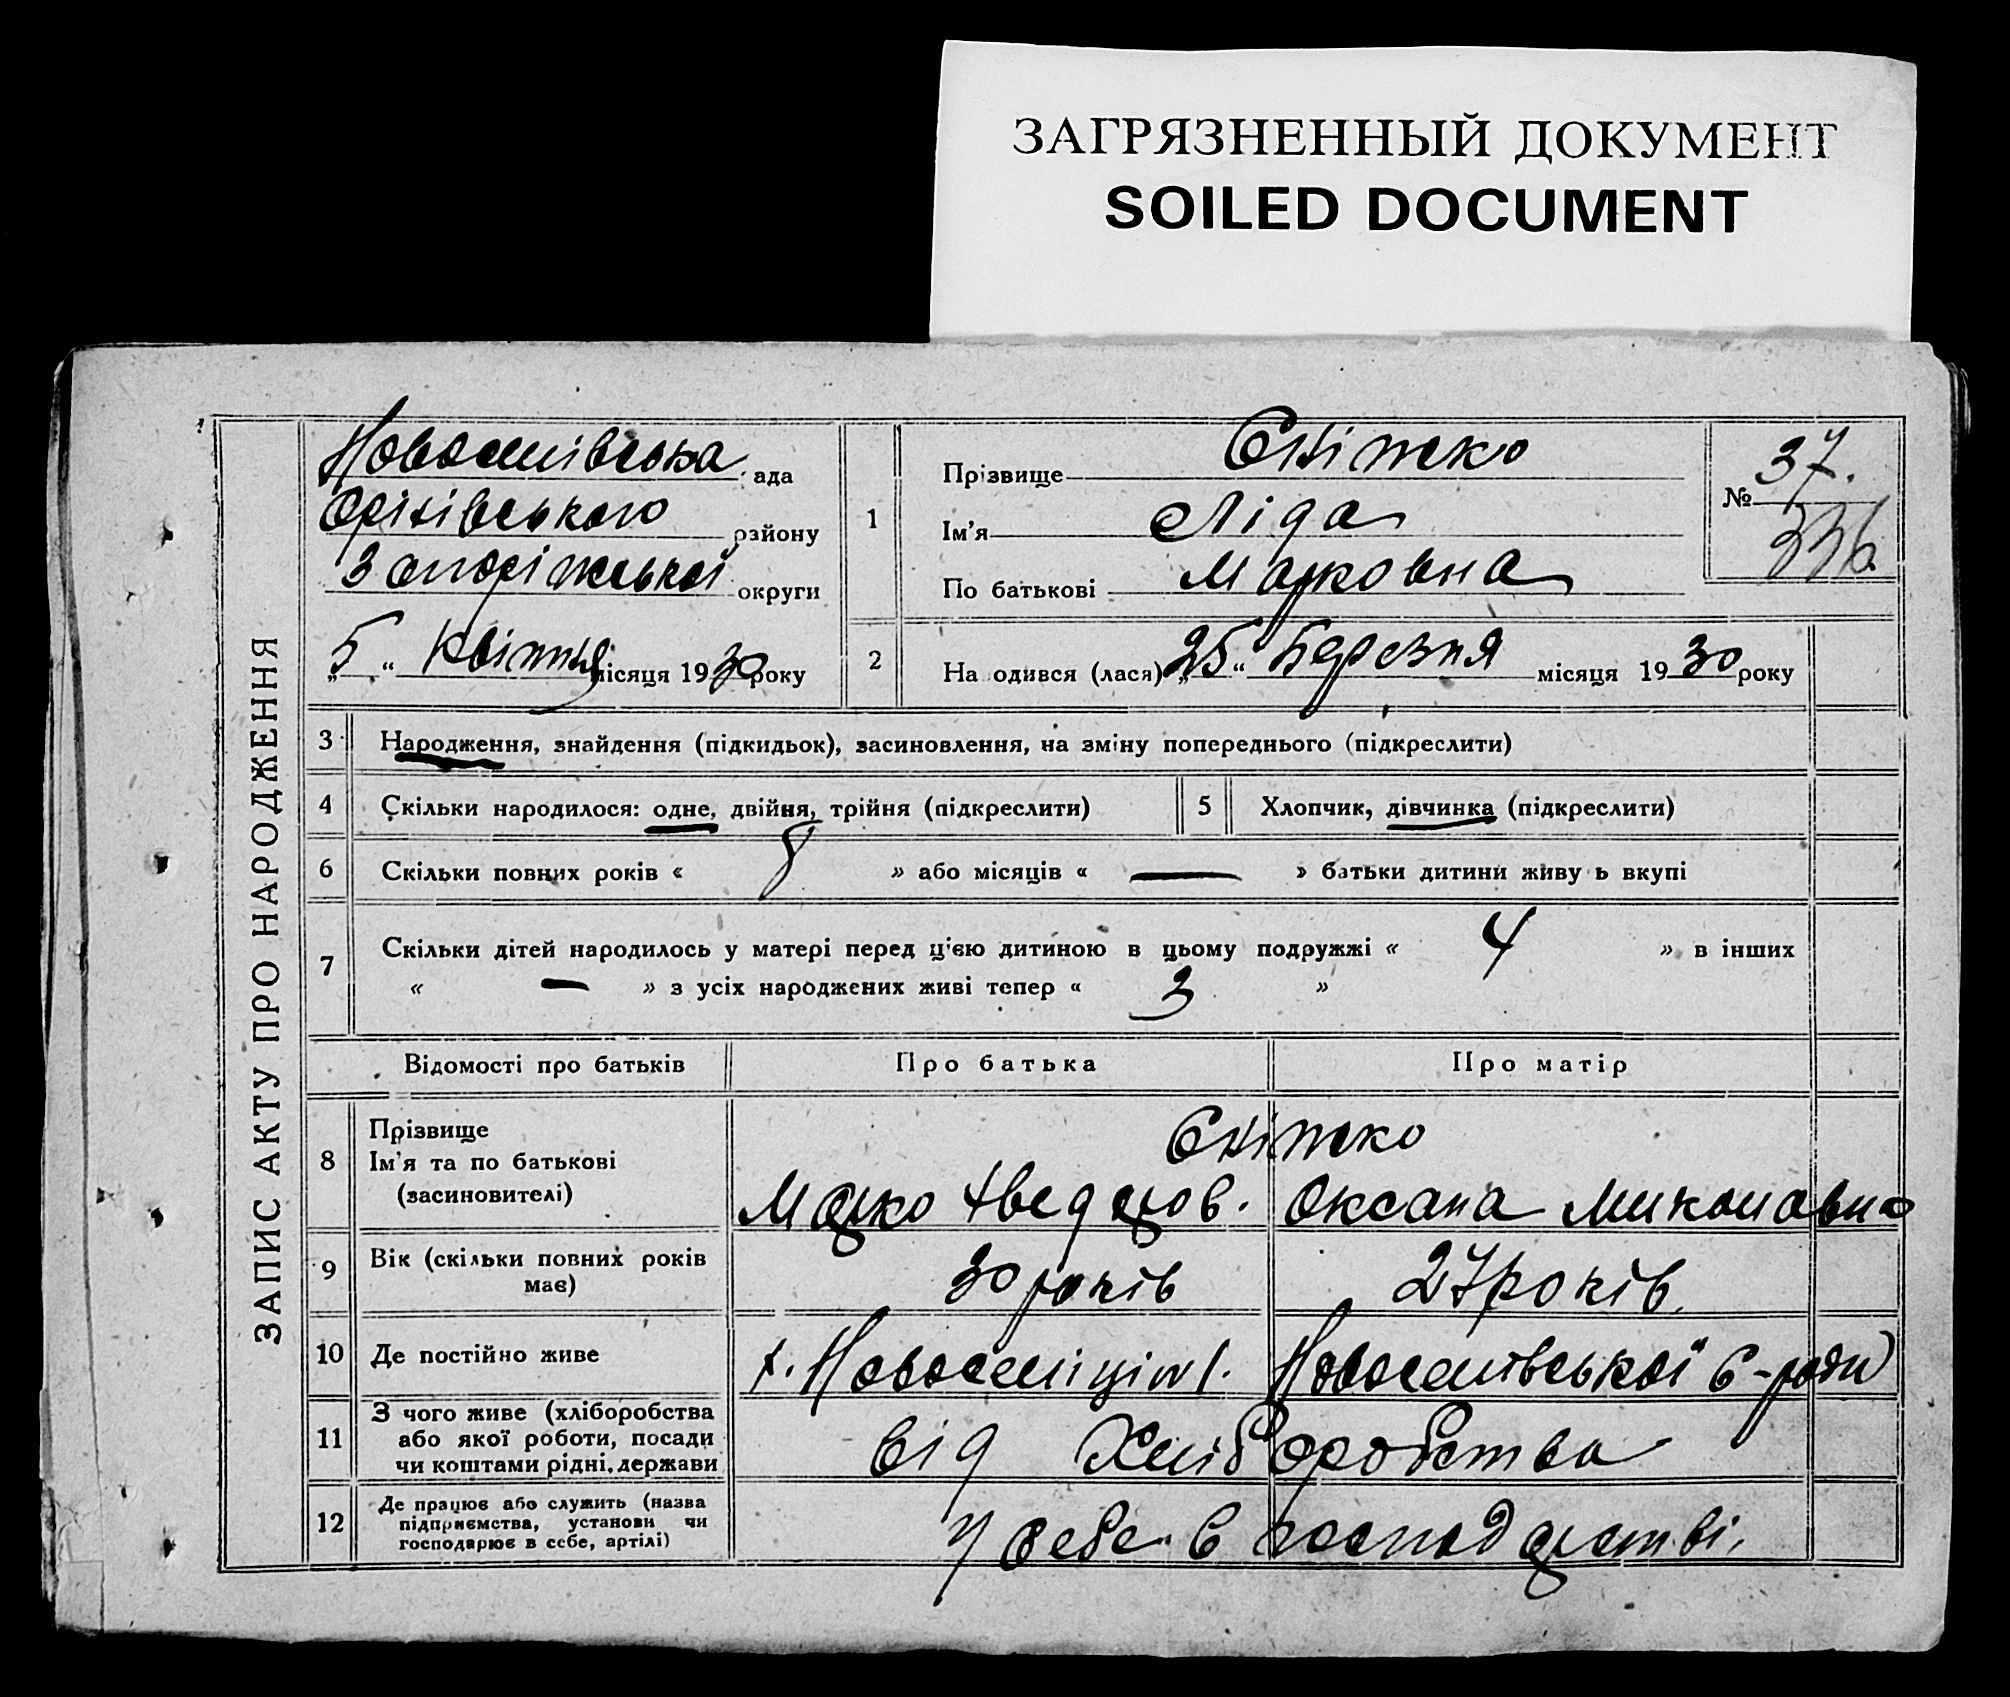 ЗАГРЯЗНЕННЫЙ ДОКУМЕНТ
SOILED DOCUMENT
ЗАПИС АКТУ ПРО НАРОДЖЕННЯ
Новоселівська ада
Оріхівського району
Запоріжської округи
„5“ Квітня місяця 1930 року
1
Прізвище Сніжко
Ім'я Ліда
По батькові Марковна
№ 37.
336
2 На одився (лася) „25“ Березня місяця 1930 року
3 Народження, знайдення (підкидьок), засиновлення, на зміну попереднього (підкреслити)
4 Скільки народилося: одне, двійня, трійня (підкреслити) 5 Хлопчик, дівчинка (підкреслити)
6 Скільки повних років « 8 » або місяців « — » батьки дитини живу ь вкупі
7 Скільки дітей народилось у матері перед ц'єю дитиною в цьому подружжі « 4 » в інших
« — » з усіх народжених живі тепер « 3 »
Відомості про батьків Про батька Про матір
8 Прізвище Сніжко
Ім'я та по батькові
(засиновителі) Марко Хведоров. Оксана Миколавна
9 Вік (скільки повних років має) 30 років 27 років.
10 Де постійно живе х. Новоселіція Новоселівської с-ради
11 З чого живе (хліборобства
або якої роботи, посади
чи коштами рідні, держави від Хліборобства
12 Де працює або служить (назва
підприємства, установи чи
господарює в себе, артілі) у себе в господарстві.